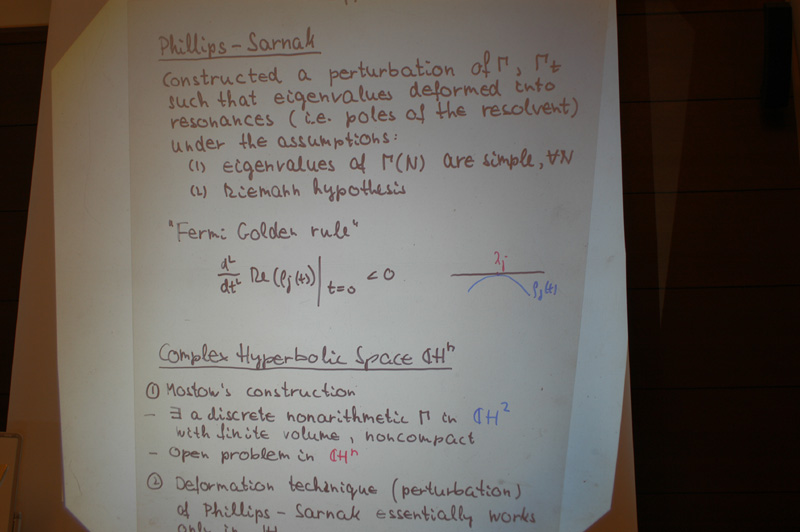 Phillips - Sarnak
Constructed a perturbation of Γ, Γt
such that eigenvalues deformed into
resonances (i.e. poles of the resolvent)
under the assumptions:
(1) eigenvalues of Γ(N) are simple, ∀N
(2) Riemann hypothesis
"Fermi Golden rule"
d²/dt² Re(ρj(t))|t=0 < 0
λj
ρj(t)
Complex Hyperbolic Space ℂHⁿ
① Mostow's construction
- ∃ a discrete nonarithmetic Γ in ℂH²
with finite volume, noncompact
- Open problem in ℂHⁿ
② Deformation technique (perturbation)
of Phillips - Sarnak essentially works
only in